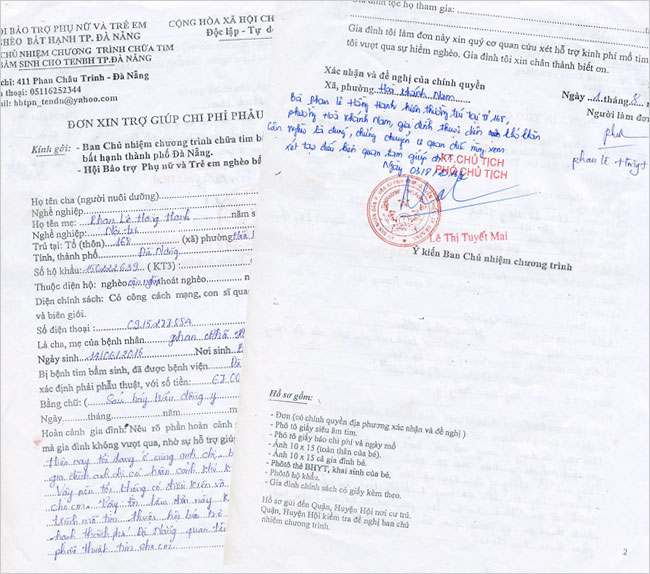 ỘI BẢO TRỢ PHỤ NỮ VÀ TRẺ EM
NGHÈO BẤT HẠNH TP. ĐÀ NẴNG
CHỦ NHIỆM CHƯƠNG TRÌNH CHỮA TIM
BẨM SINH CHO TENBH TP.ĐÀ NẴNG
chỉ: 411 Phan Châu Trinh - Đà Nẵng
thoại : 05116252344
ail: hbtpn_tendn@yahoo.com
CỘNG HÒA XÃ HỘI CH
Độc lập - Tự d
ĐƠN XIN TRỢ GIÚP CHI PHÍ PHẪU
Kính gởi: - Ban Chủ nhiệm chương trình chữa tim b
bất hạnh thành phố Đà Nẵng.
- Hội Bảo trợ Phụ nữ và Trẻ em nghèo b
Họ tên cha (người nuôi dưỡng)
Nghề nghiệp
Họ tên mẹ: Phan Lê Hồng Hạnh năm s
Nghề nghiệp: Nội trợ
Trú tại: Tổ (thôn) 168 (xã) phường
Tỉnh, thành phố Đà Nẵng
Số hộ khẩu: ( KT3)
Thuộc diện hộ: nghèo cận nghèo thoát nghèo
Diện chính sách: Có công cách mạng, con sĩ qua
và biên giới.
Số điện thoại :
Là cha, mẹ của bệnh nhân phan
Ngày sinh 14/06/2016 Nơi sinh
Bị bệnh tim bẩm sinh, đã được bệnh viện
xác định phải phẫu thuật, với số tiền: 67.00
Bằng chữ: ( Sáu bảy triệu đồng y
Ngày tháng năm
Hoàn cảnh gia đình: Nêu rõ phần hoàn cảnh
mà gia đình không vượt qua, nhờ sự hỗ trợ giú
Hiện nay tôi đang ở cùng anh chị, b
gia đình anh chị có hoàn cảnh khó k
Vậy nên tôi không có điều kiện
cho con. Vậy tôi làm đơn này k
hạnh thành phố Đà Nẵng quan tâ
phẫu thuật tim cho con.
đình tộc họ tham gia:
Gia đình tôi làm đơn này xin quý cơ quan cứu xét hỗ trợ kinh phí mổ tim
tôi vượt qua sự hiểm nghèo. Gia đình tôi xin chân thành biết ơn.
Xác nhận và đề nghị của chính quyền
Xã, phường Hòa Khánh Nam
Ngày 1 tháng 8
Người làm đơn
Bà Phan Lê Hồng Hạnh hiện thường trú tại tổ 168,
phường Hòa Khánh Nam, gia đình thuộc diện khó khăn
xét tạo điều kiện quan tâm giúp đỡ
KT.CHỦ TỊCH
PHÓ CHỦ TỊCH
Lê Thị Tuyết Mai
Ý kiến Ban Chủ nhiệm chương trình
Hồ sơ gồm:
- Đơn (có chính quyền địa phương xác nhận và đề nghị )
- Phô tô giấy siêu âm tim.
- Phô tô giấy báo chi phí và ngày mổ
- Ảnh 10 x 15 (toàn thân của bé).
- Ảnh 10 x 15 cả gia đình bé.
- Phôtô thẻ BHYT, khai sinh của bé.
- Phôtô hộ khẩu.
- Gia đình chính sách có giấy kèm theo.
Hồ sơ gửi đến Quận, Huyện Hội nơi cư trú.
Quận, Huyện Hội kiểm tra đề nghị ban chủ
nhiệm chương trình.
2